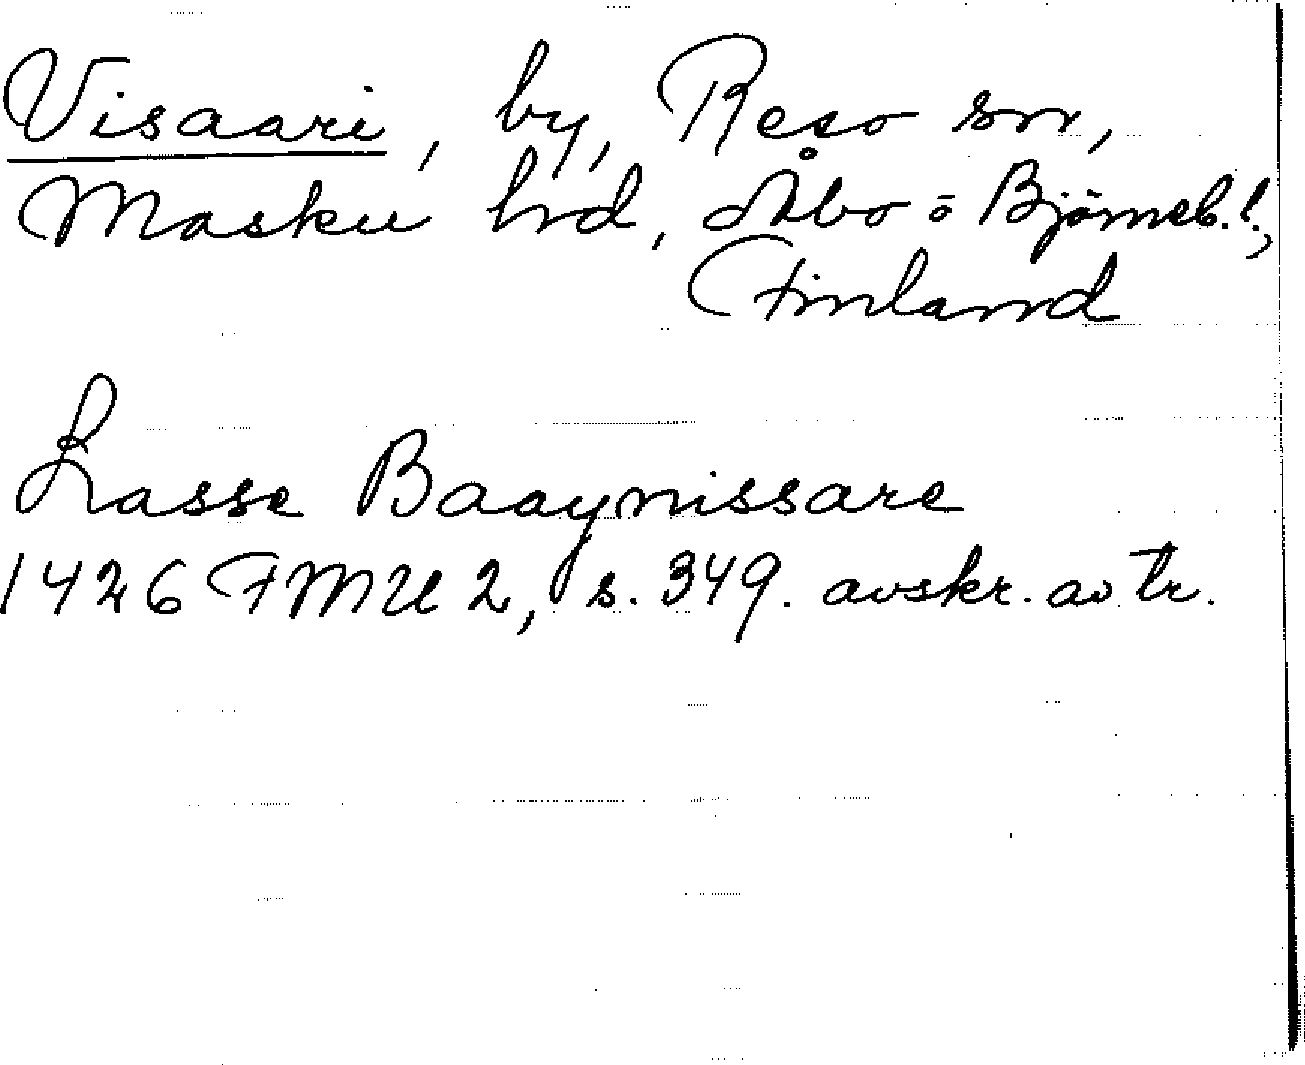 Visaari, by, Reso sn,
Masku hrd, Åbo o Björneb. l.,
Finland
Lasse Baaynissare
1426 FMU 2, s. 349. avskr. av tr.